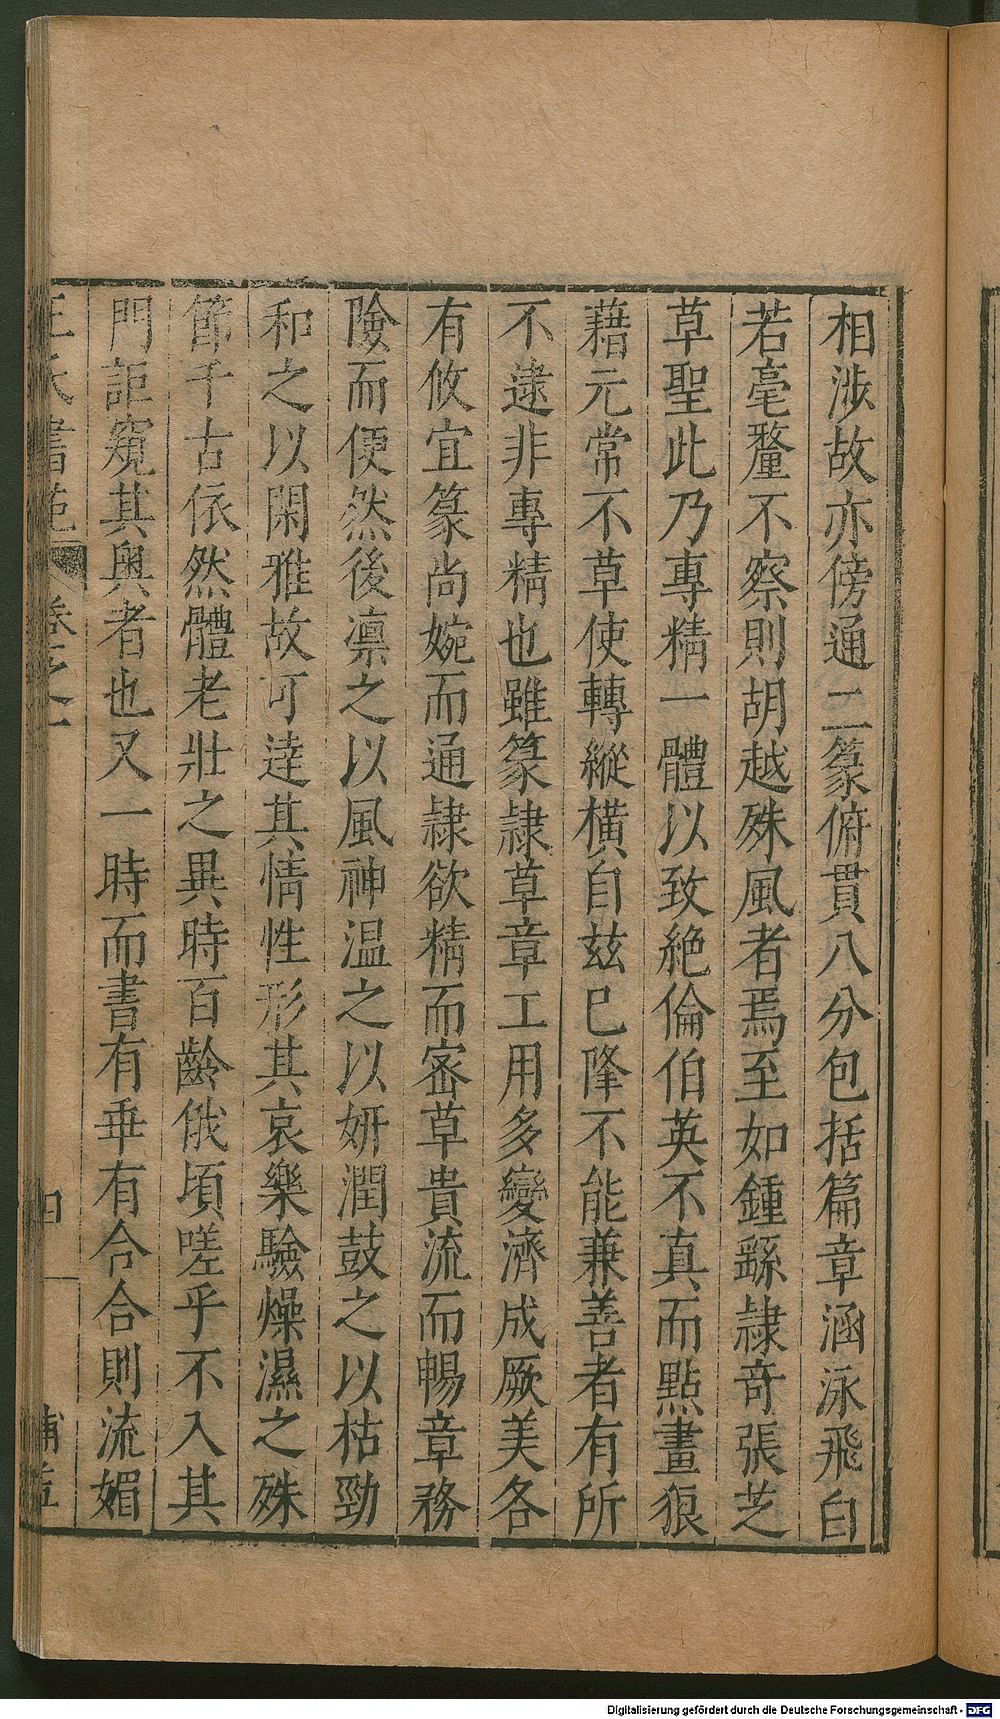 相涉故亦傍通二篆俯貫八分包括篇章涵泳飛白
若毫釐不察則胡越殊風者焉至如鍾繇隷奇張芝
草聖此乃專精一體以致絶倫伯英不真而點畫狼
藉元常不草使轉縱横自兹已降不能兼善者有所
不逮非專精也雖篆隷草章工用多變濟成厥美各
有攸宜篆尚婉而通隷欲精而宻草貴流而暢章務
險而便然後凛之以風神温之以妍潤鼓之以枯勁
和之以閑雅故可逹其情性形其哀樂驗燥濕之殊
節千古依然體老壯之異時百齡俄頃嗟乎不入其
門詎窺其奥者也又一時而書有乖有合合則流媚
王氏書苑 卷之一 四
Digitalisierung gefördert durch die Deutsche Forschungsgemeinschaft - DFG